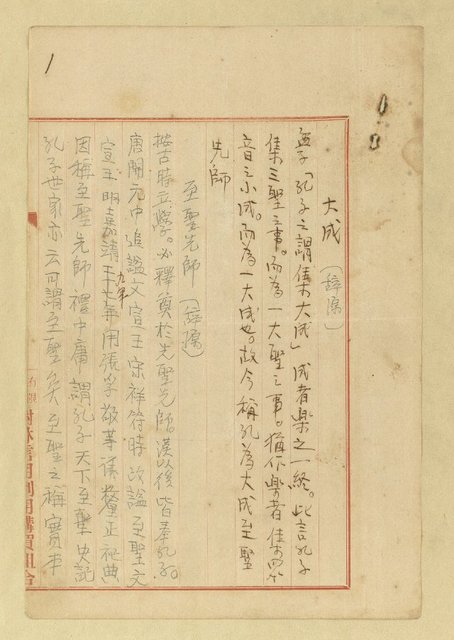 1
大成（辞源）
孟子「孔子之謂集大成」成者樂之一終。此言孔子
集三聖之事。而為一大聖之事。猶作樂者集衆
音之小成。而為一大成也。故今稱孔為大成至聖
先師
至聖先師（辞源）
按古時立學。必釋奠於先聖先師。漢以後皆奉孔子。
唐開元中追謚文宣王宋祥符時改謚至聖文
宣王明嘉靖九年用張孚敬等議釐正祀典
因稱至聖先師禮中庸謂孔子天下至聖史記
孔子世家亦云可謂至聖矣至聖之稱實本
信用利用購買組合